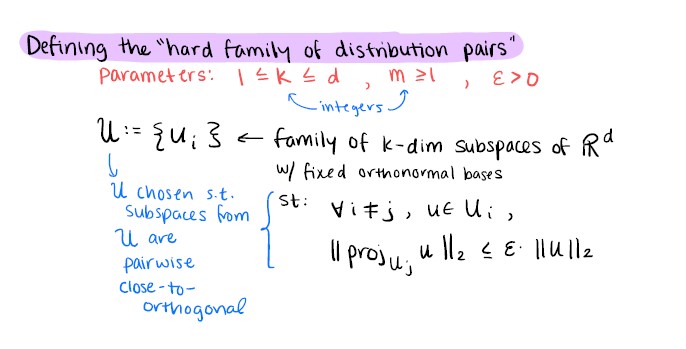 Defining the "hard family of distribution pairs"
parameters: 1 ≤ k ≤ d , m ≥ 1 , ε > 0
integers
U := {U_i} ← family of k-dim subspaces of ℝ^d
w/ fixed orthonormal bases
U chosen s.t.
subspaces from
U are
pairwise
close-to-
orthogonal
st: ∀ i ≠ j , u ∈ U_i ,
‖ proj_{U_j} u ‖_2 ≤ ε · ‖u‖_2